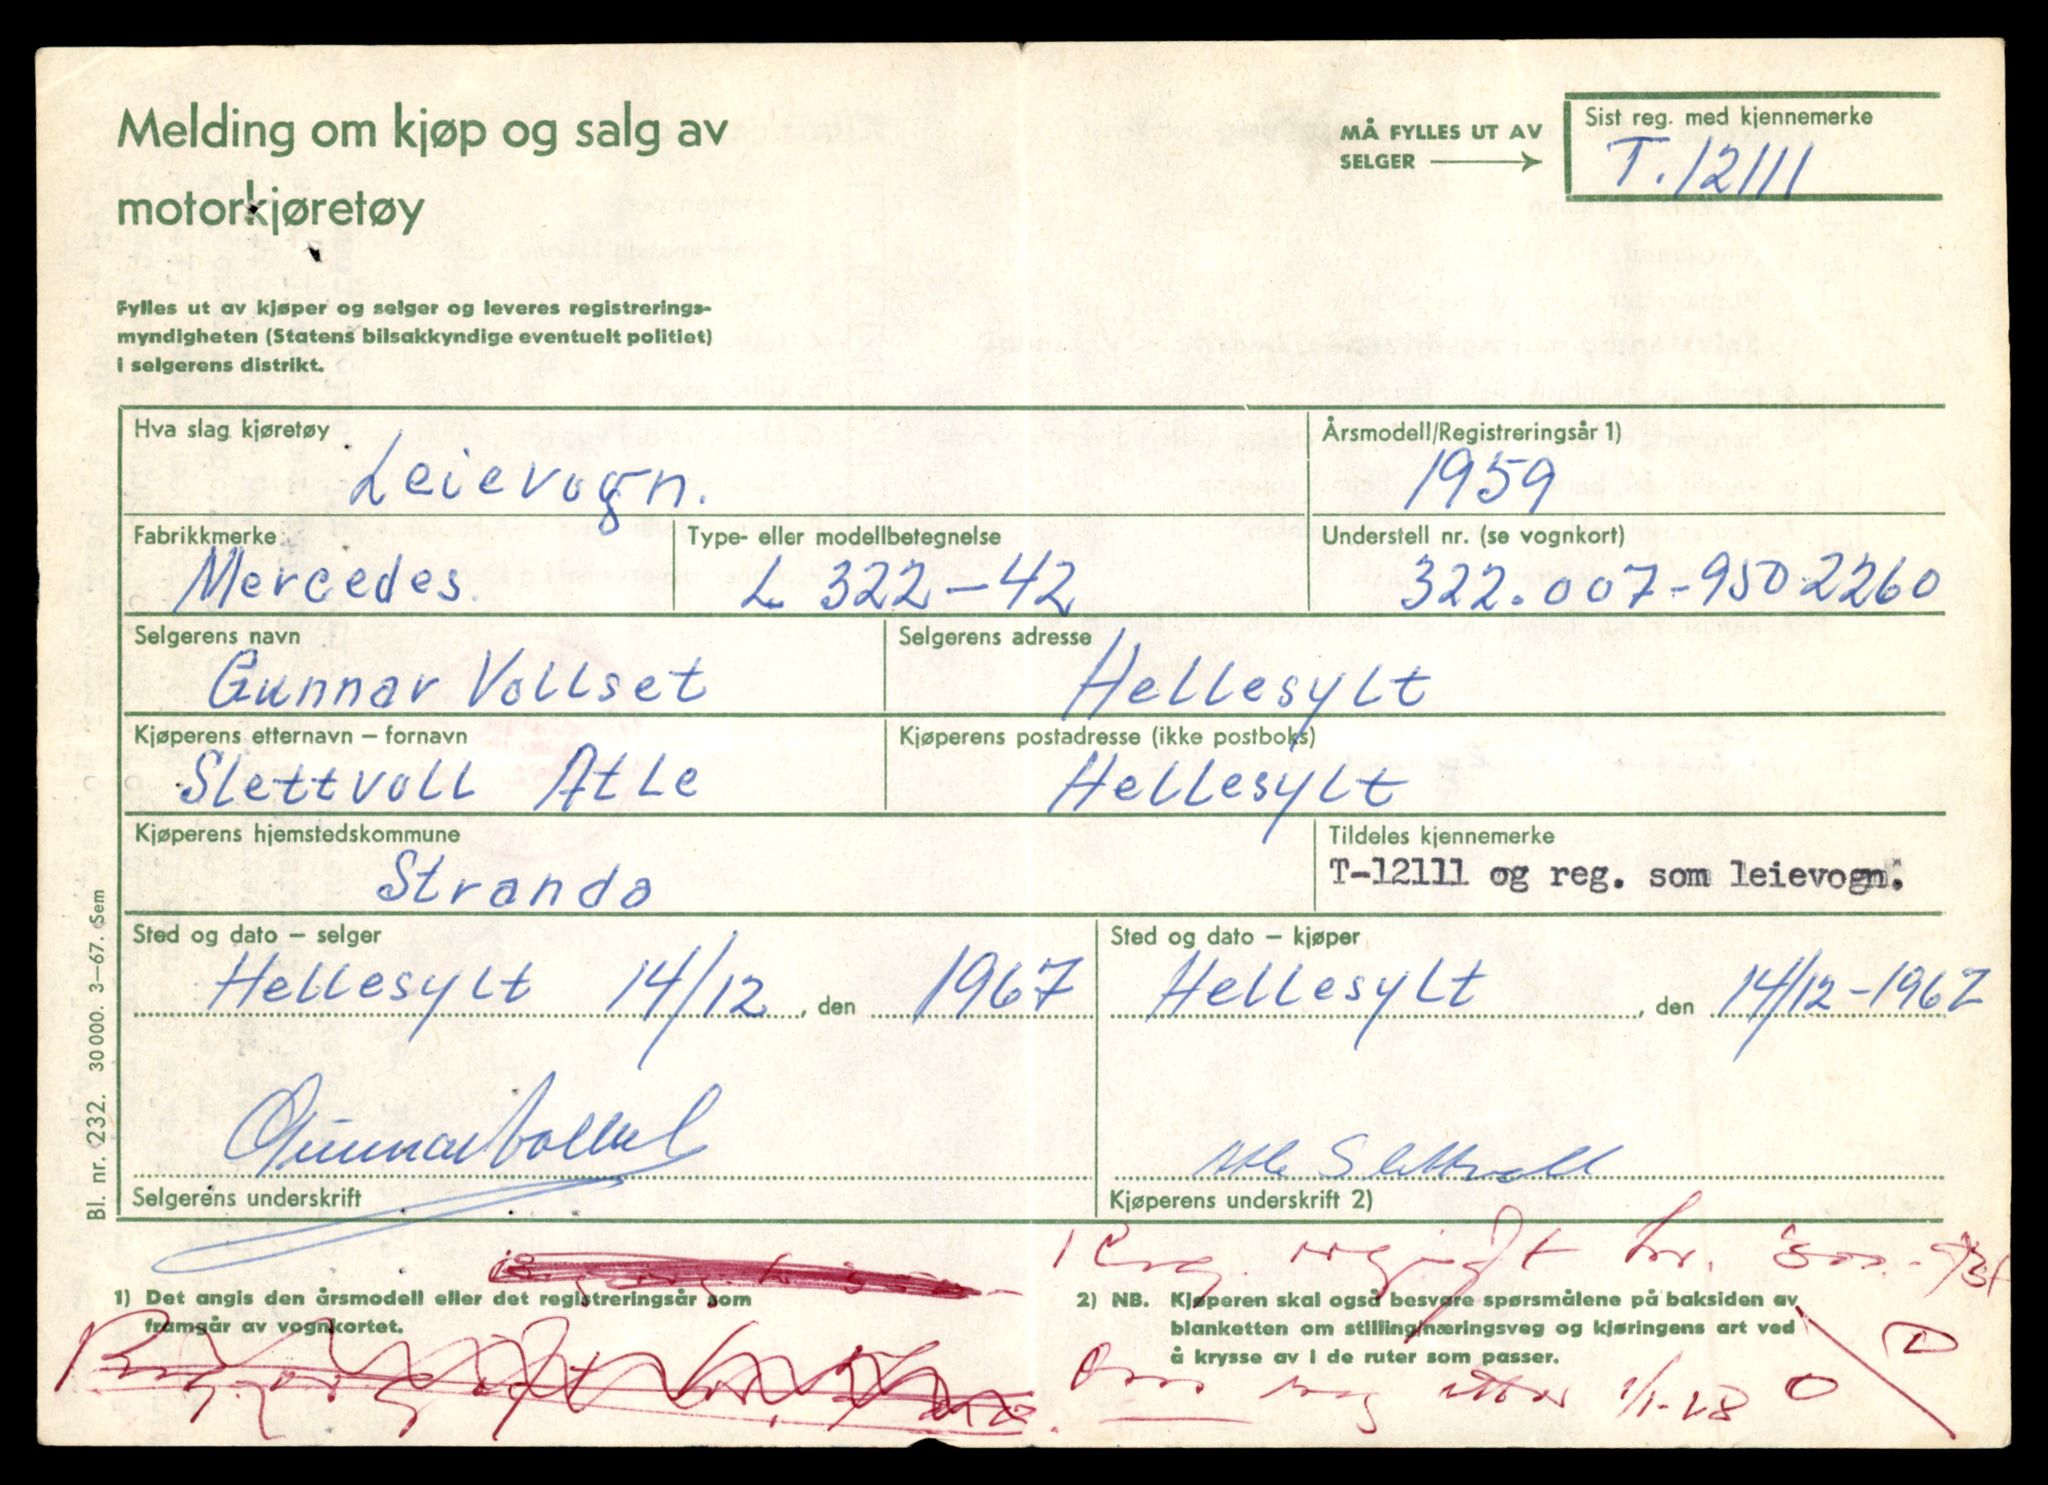 Melding om kjøp og salg av
motorkjøretøy
MÅ FYLLES UT AV
SELGER
Sist reg. med kjennemerke
T. 12111
Fylles ut av kjøper og selger og leveres registrerings-
myndigheten (Statens bilsakkyndige eventuelt politiet)
i selgerens distrikt.
Hva slag kjøretøy
Leievogn.
Årsmodell/Registreringsår 1)
1959
Fabrikkmerke
Mercedes.
Type- eller modellbetegnelse
L 322-42
Understell nr. (se vognkort)
322.007-9502260
Selgerens navn
Gunnar Vollset
Selgerens adresse
Hellesylt
Kjøperens etternavn – fornavn
Slettvoll Atle
Kjøperens postadresse (ikke postboks)
Hellesylt
Kjøperens hjemstedskommune
Stranda
Tildeles kjennemerke
T-12111 og reg. som leievogn.
Sted og dato – selger
Hellesylt 14/12, den 1967
Sted og dato – kjøper
Hellesylt, den 14/12-1967
Gunnar Vollset
Selgerens underskrift
Atle Slettvoll
Kjøperens underskrift 2)
Bl. nr. 232. 30 000. 3–67. Sem
1) Det angis den årsmodell eller det registreringsår som
framgår av vognkortet.
2) NB. Kjøperen skal også besvare spørsmålene på baksiden av
blanketten om stilling/næringsveg og kjøringens art ved
å krysse av i de ruter som passer.